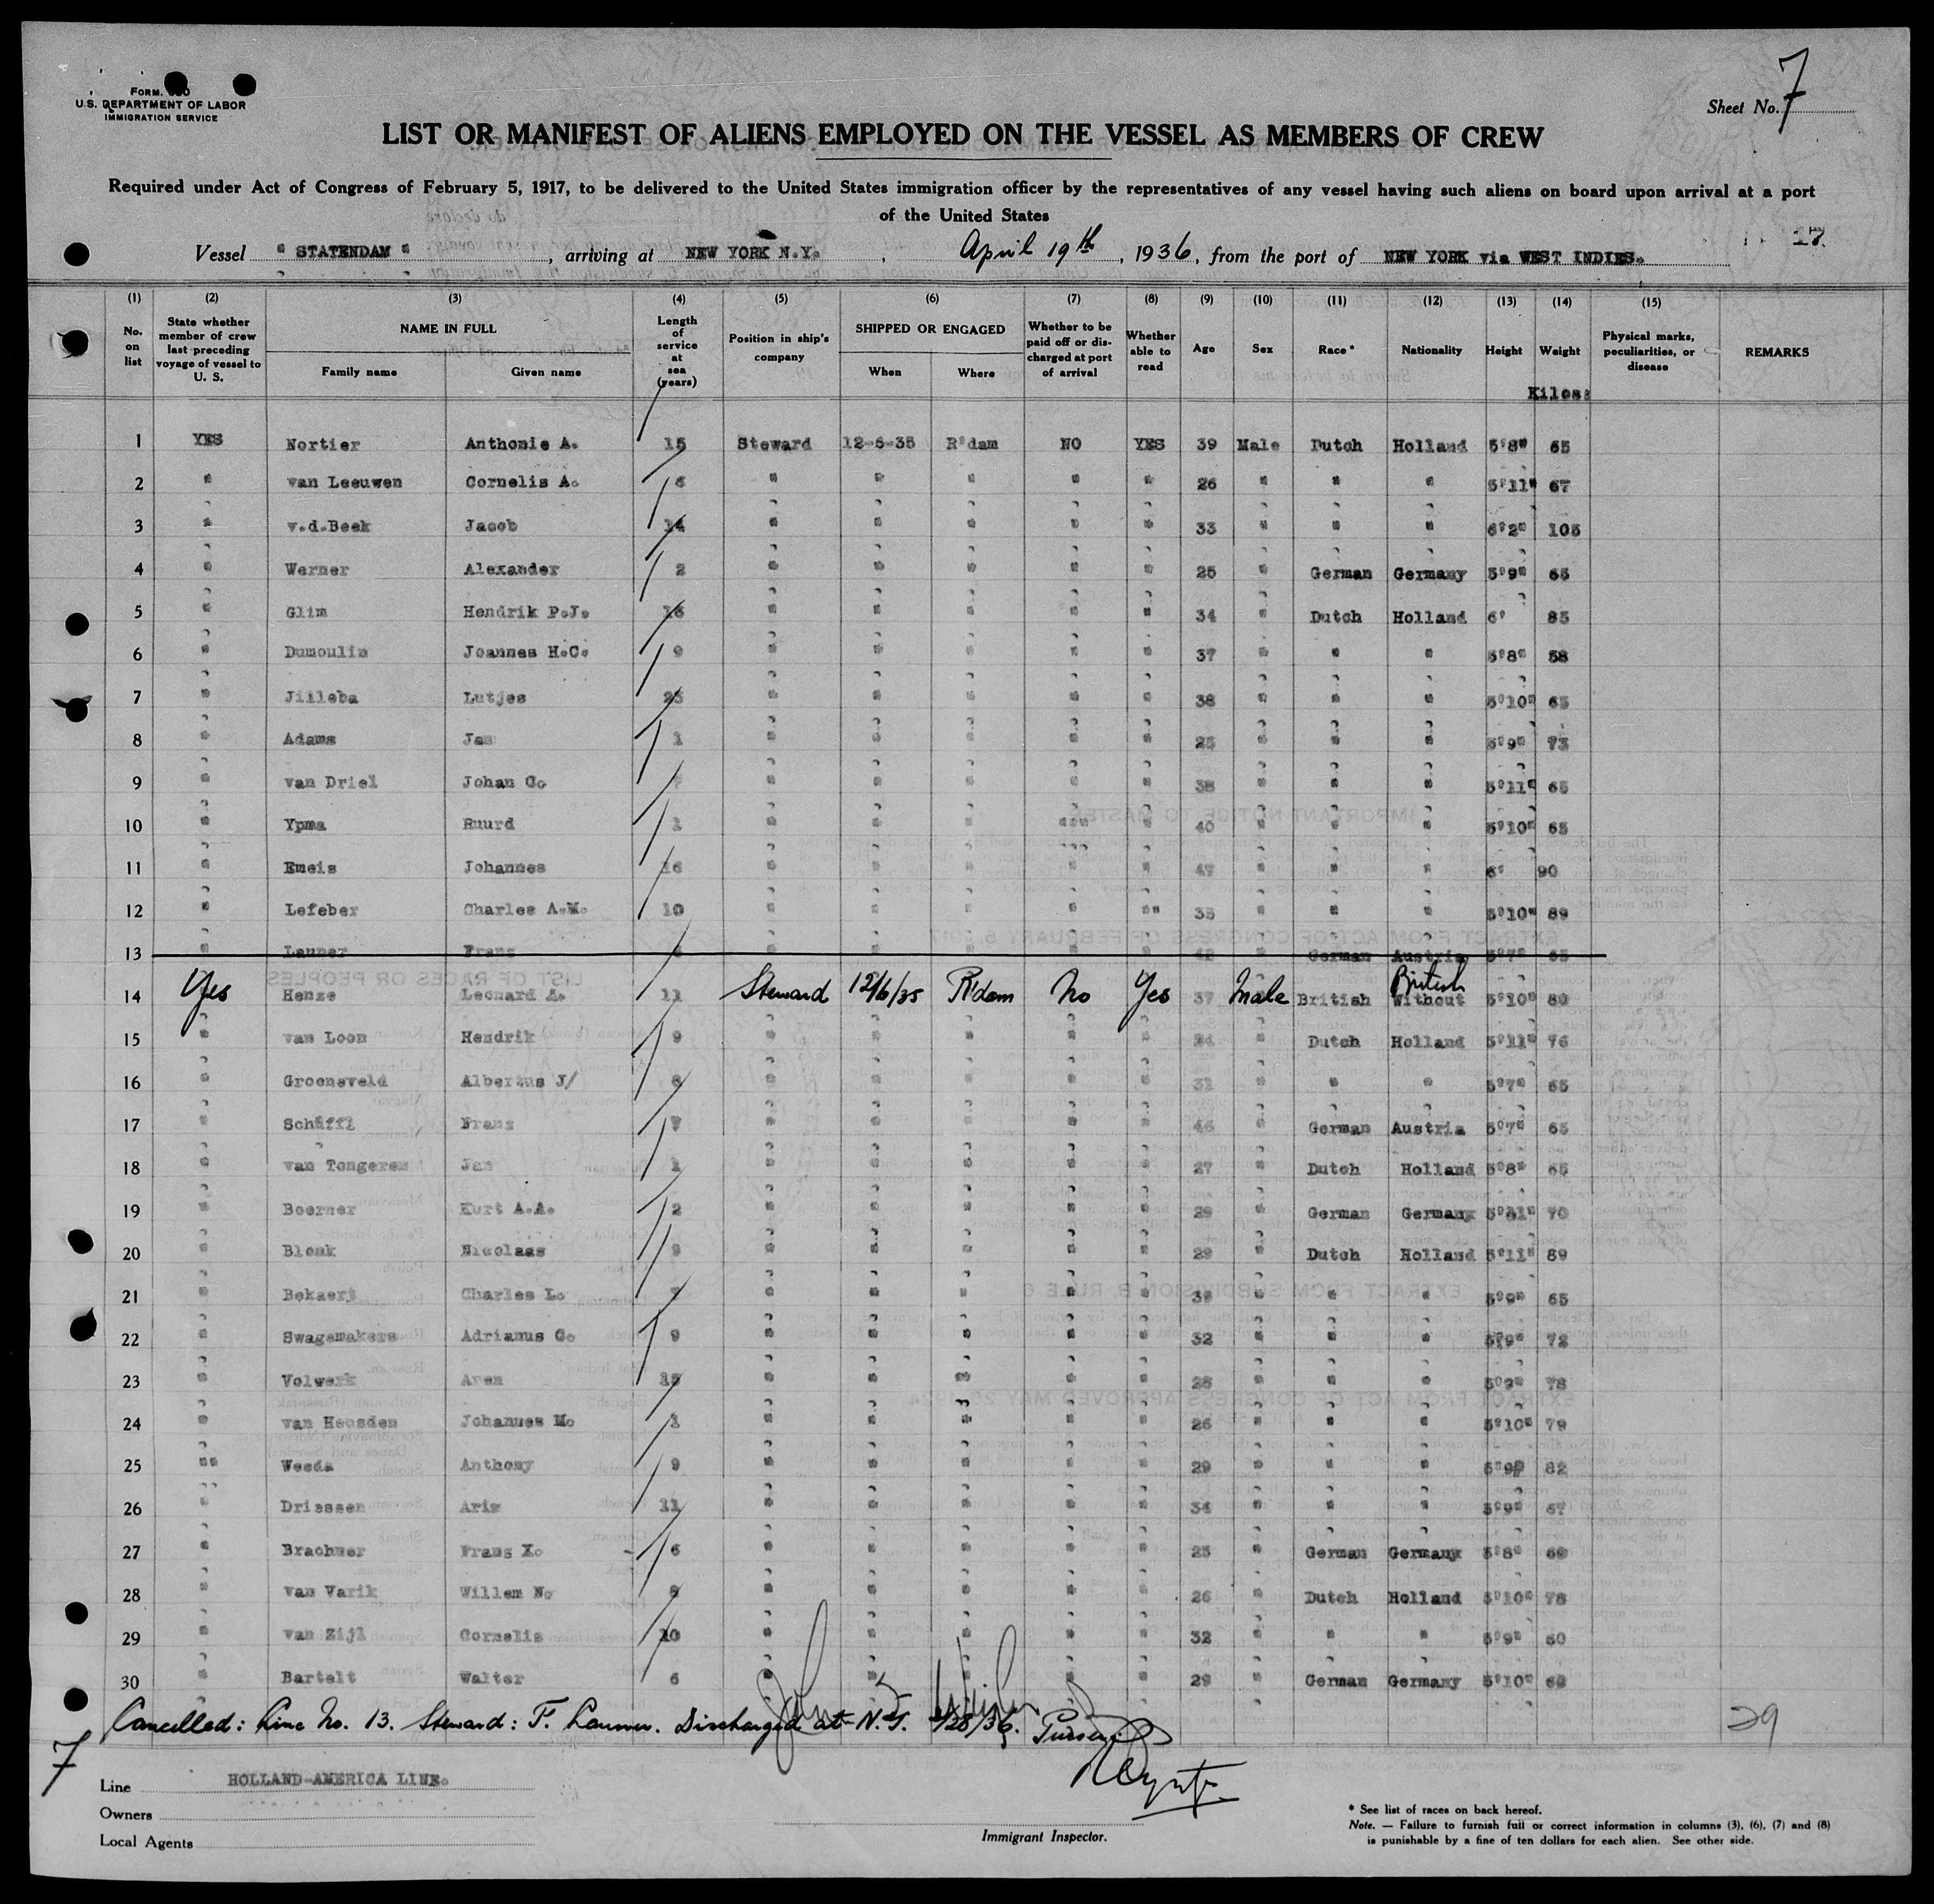 FORM.
U.S. DEPARTMENT OF LABOR
IMMIGRATION SERVICE
Sheet No. 7
LIST OR MANIFEST OF ALIENS EMPLOYED ON THE VESSEL AS MEMBERS OF CREW
Required under Act of Congress of February 5, 1917, to be delivered to the United States immigration officer by the representatives of any vessel having such aliens on board upon arrival at a port
of the United States
17.
Vessel " STATENDAM ", arriving at NEW YORK N.Y., April 19th, 1936, from the port of NEW YORK via WEST INDIES.
(1) (2) (3) (4) (5) (6) (7) (8) (9) (10) (11) (12) (13) (14) (15)
No. on list State whether member of crew last preceding voyage of vessel to U. S. NAME IN FULL Family name Given name Length of service at sea (years) Position in ship's company SHIPPED OR ENGAGED When Where Whether to be paid off or discharged at port of arrival Whether able to read Age Sex Race* Nationality Height Weight Physical marks, peculiarities, or disease REMARKS
Kilos:
1 YES Nortier Anthonie A. 15 Steward 12-6-35 R'dam NO YES 39 Male Dutch Holland 5'8" 65
2 " van Leeuwen Cornelis A. " " " " " 26 " " " 5'11" 67
3 " v.d.Beek Jacob 14 " " " " " 33 " " " 6'2" 105
4 " Werner Alexander 2 " " " " " 25 " German Germany 5'9" 65
5 " Glim Hendrik P.J. 16 " " " " " 34 " Dutch Holland 6' 85
6 " Dumoulin Joannes H.C. 9 " " " " " 37 " " " 5'8" 58
7 " Jilleba Lutjes 23 " " " " " 38 " " " 5'10" 65
8 " Adams Jan 1 " " " " " 25 " " " 5'9" 73
9 " van Driel Johan G. " " " " " 38 " " " 5'11" 65
10 " Ypma Ruurd 1 " " " " " 40 " " " 5'10" 65
11 " Emeis Johannes 16 " " " " " 47 " " " 6' 90
12 " Lefeber Charles A.M. 10 " " " " "" 35 " " " 5'10" 89
13 " Launer Frans " " " " " 42 " German Austria 5'7" 65
14 Yes Henze Leonard A. 11 Steward 12/6/35 R'dam No Yes 37 Male British Without British 5'10" 80
15 " van Loon Hendrik 9 " " " " " " Dutch Holland 5'11" 76
16 " Groeneveld Albertus J/ " " " " " 31 " " " 5'7" 65
17 " Schäffl Frans 7 " " " " " 46 " German Austria 5'7" 65
18 " van Tongeren Jan 1 " " " " " 27 " Dutch Holland 5'8" 65
19 " Boerner Kurt A.A. 2 " " " " " 29 " German Germany 70
20 " Blonk Nicolaas 9 " " " " " 29 " Dutch Holland 5'11" 89
21 " Bekaert Charles L. 7 " " " " " " " " 65
22 " Swagemakers Adrianus C. 9 " " " " " 32 " " " 5'9" 72
23 " Volwerk Aren " " " " " 28 " " " 78
24 " van Heusden Johannes M. " " " " " 26 " " " 5'10" 79
25 "" Weeda Anthony 9 " " " " " 29 " " " 5'9" 82
26 " Driessen Arie 11 " " " " " 34 " " " 5'9" 67
27 " Brachner Frans X. 6 " " " " " 25 " German Germany 5'8" 60
28 " van Varik Willem N. " " " " " 26 " Dutch Holland 5'10" 78
29 " van Zijl Cornelis 10 " " " " " 32 " " " 5'9" 60
30 " Bartelt Walter 6 " " " " 29 " German Germany 5'10" 60
Cancelled: Line No. 13. Steward: F. Launer. Discharged at N.Y. /28/36. Purser
29
7
Line HOLLAND-AMERICA LINE.
Owners
Local Agents
Immigrant Inspector.
* See list of races on back hereof.
Note. — Failure to furnish full or correct information in columns (3), (6), (7) and (8)
is punishable by a fine of ten dollars for each alien. See other side.